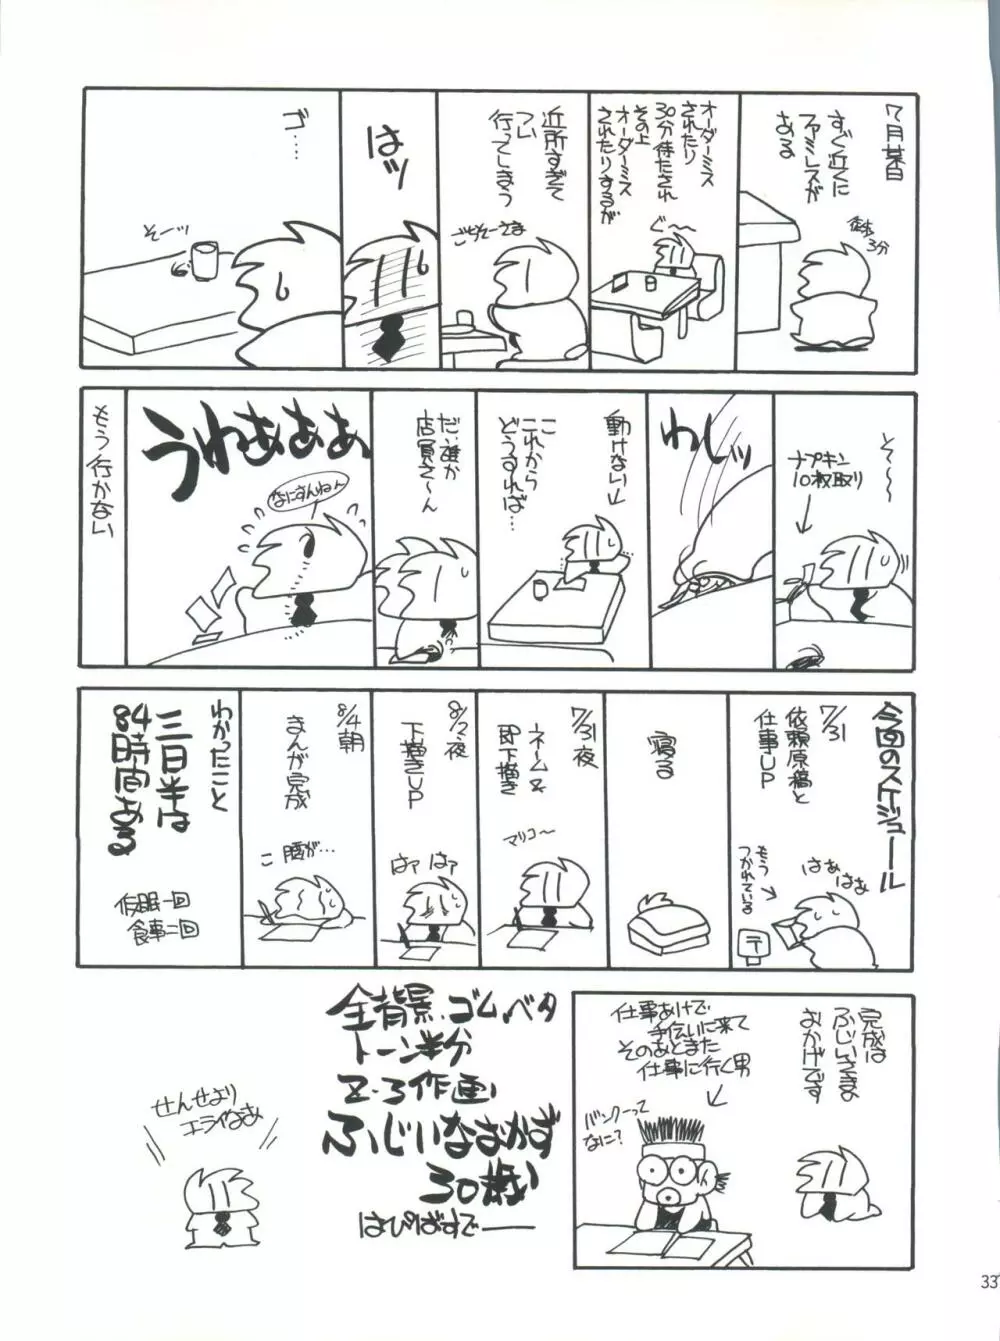 7月某日
すぐ近くに
ファミレスが
ある
徒歩
3分
オーダーミス
されたり
30分待たされ
その上
オーダーミス
されたりするが
ぐ〜
近所すぎて
つい
行ってしまう
ごちそーさま
はッ
ゴ…
そーッ
そ〜〜
ナプキン
10枚取り
わしッ
動けない
こ
これから
どうすれば…
だ、誰か
店員さ〜ん
うわあああ
なにすんねん
もう行かない
今回のスケジュール
7/31
依頼原稿と
仕事UP
はぁ
はぁ
もう
つかれている
〒
寝る
7/31夜
ネーム&
即下描き
マリコ〜
8/2夜
下描きUP
はァ はァ
8/4朝
まんが完成
こ 腰が…
わかったこと
三日半は
84時間ある
仮眠一回
食事二回
完成は
ふじいさまの
おかげです
仕事あけで
手伝いに来て
そのあとまた
仕事に行く男
バンクーって
なに?
全背景、ゴム、ベタ
トーン半分
Z・3作画
ふじいなおかず
30歳
はぴばすでー
せんせより
エライなあ
33